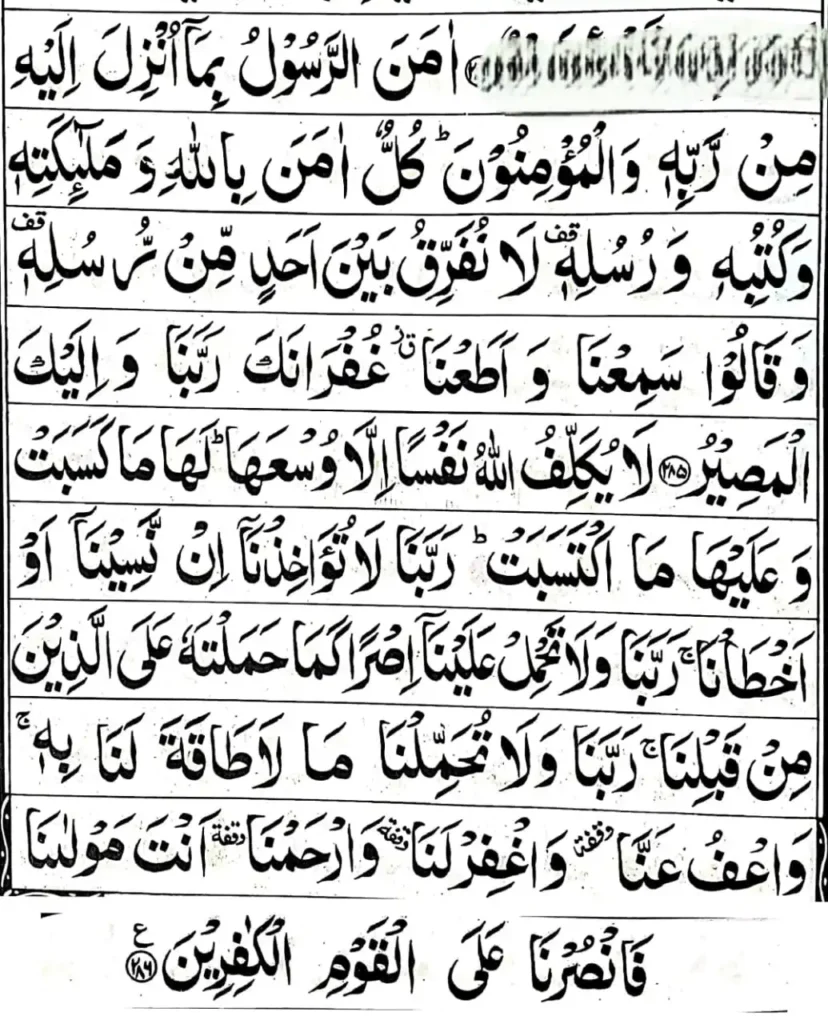 اٰمَنَ الرَّسُوْلُ بِمَاۤ اُنْزِلَ اِلَيْهِ
مِنْ رَّبِّهٖ وَالْمُؤْمِنُوْنَ ؕ كُلٌّ اٰمَنَ بِاللّٰهِ وَ مَلٰٓئِكَتِهٖ
وَكُتُبِهٖ وَ رُسُلِهٖ ۫ لَا نُفَرِّقُ بَيْنَ اَحَدٍ مِّنْ رُّسُلِهٖ ۫
وَ قَالُوْا سَمِعْنَا وَ اَطَعْنَا ٘ غُفْرَانَكَ رَبَّنَا وَ اِلَيْكَ
الْمَصِيْرُ ﴿۲۸۵﴾ لَا يُكَلِّفُ اللّٰهُ نَفْسًا اِلَّا وُسْعَهَا ؕ لَهَا مَا كَسَبَتْ
وَ عَلَيْهَا مَا اكْتَسَبَتْ ؕ رَبَّنَا لَا تُؤَاخِذْنَاۤ اِنْ نَّسِيْنَاۤ اَوْ
اَخْطَاْنَا ۚ رَبَّنَا وَلَا تَحْمِلْ عَلَيْنَاۤ اِصْرًا كَمَا حَمَلْتَهٗ عَلَى الَّذِيْنَ
مِنْ قَبْلِنَا ۚ رَبَّنَا وَلَا تُحَمِّلْنَا مَا لَا طَاقَةَ لَنَا بِهٖ ۚ
وَاعْفُ عَنَّا وقفة وَاغْفِرْ لَنَا وقفة وَارْحَمْنَا وقفة اَنْتَ مَوْلٰىنَا
فَانْصُرْنَا عَلَى الْقَوْمِ الْكٰفِرِيْنَ ﴿۲۸۶﴾ ع